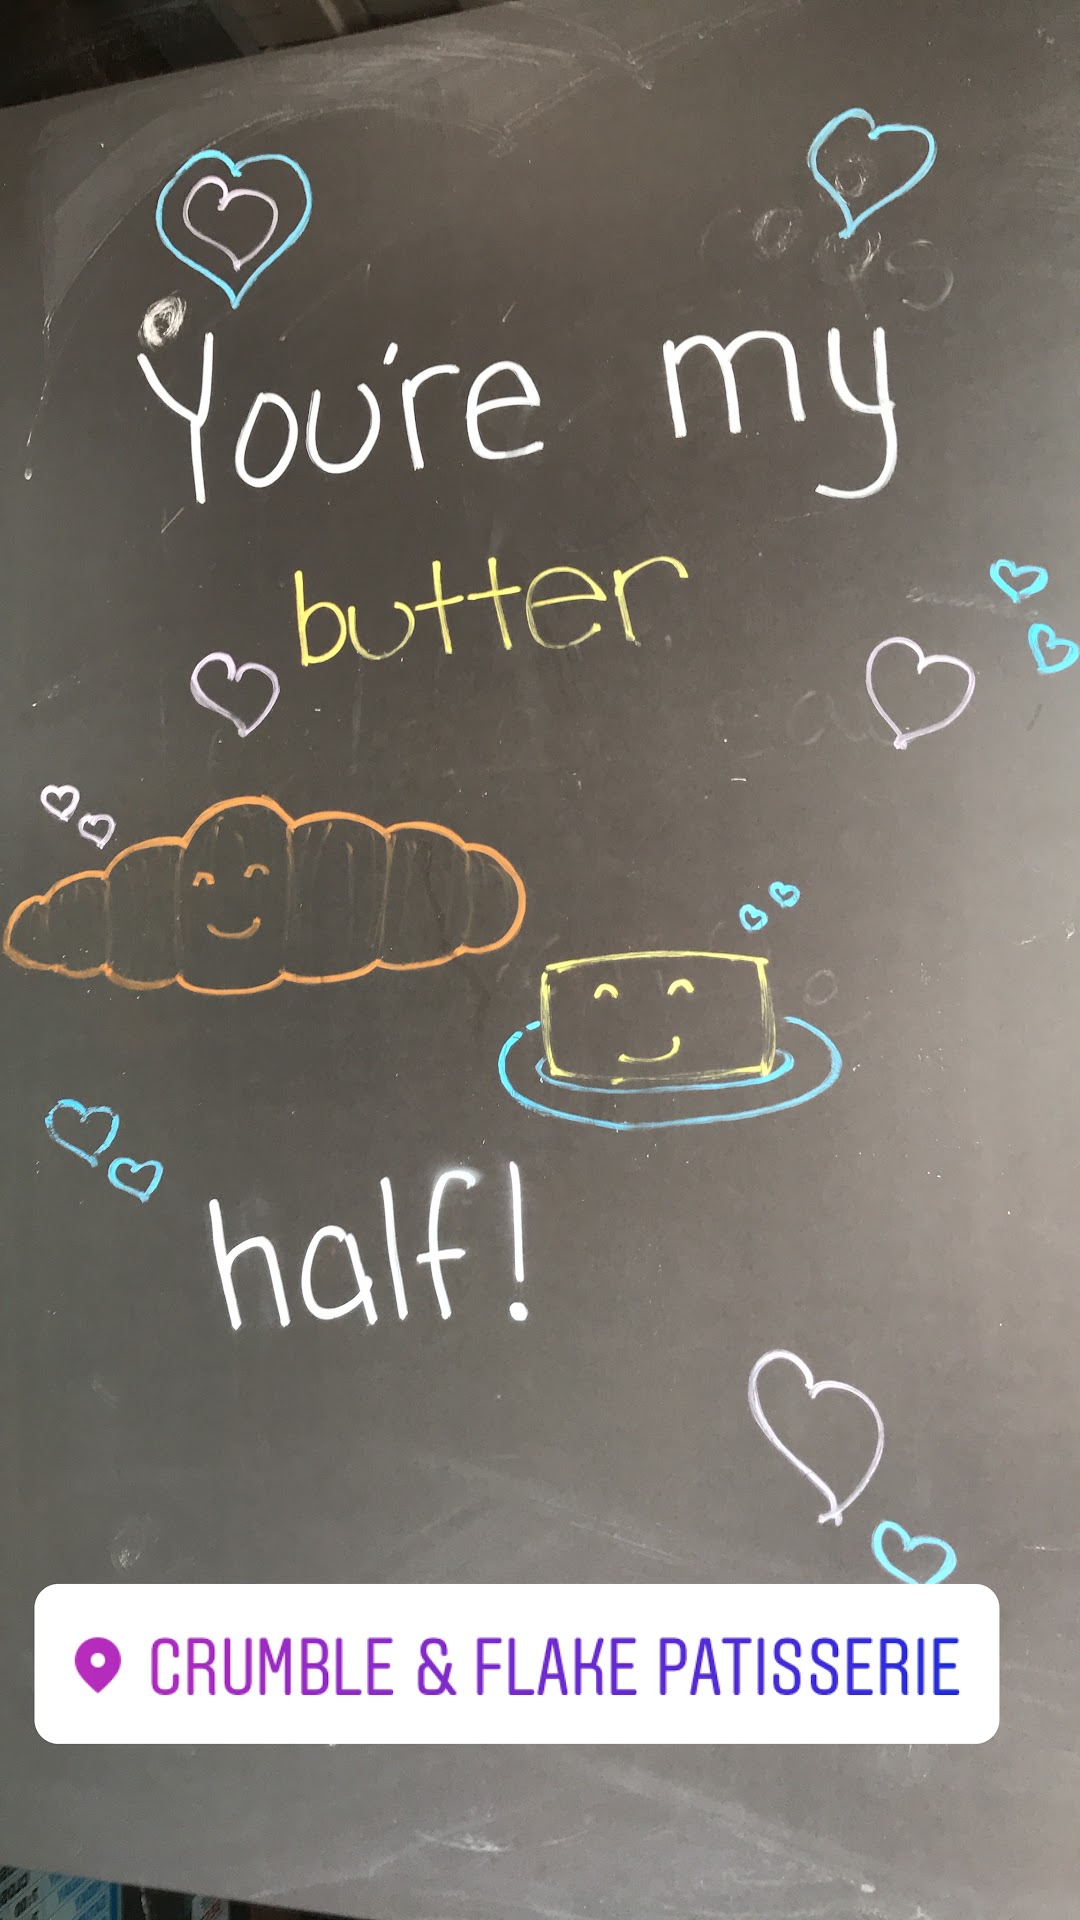 You're my
butter
half!
CRUMBLE & FLAKE PATISSERIE